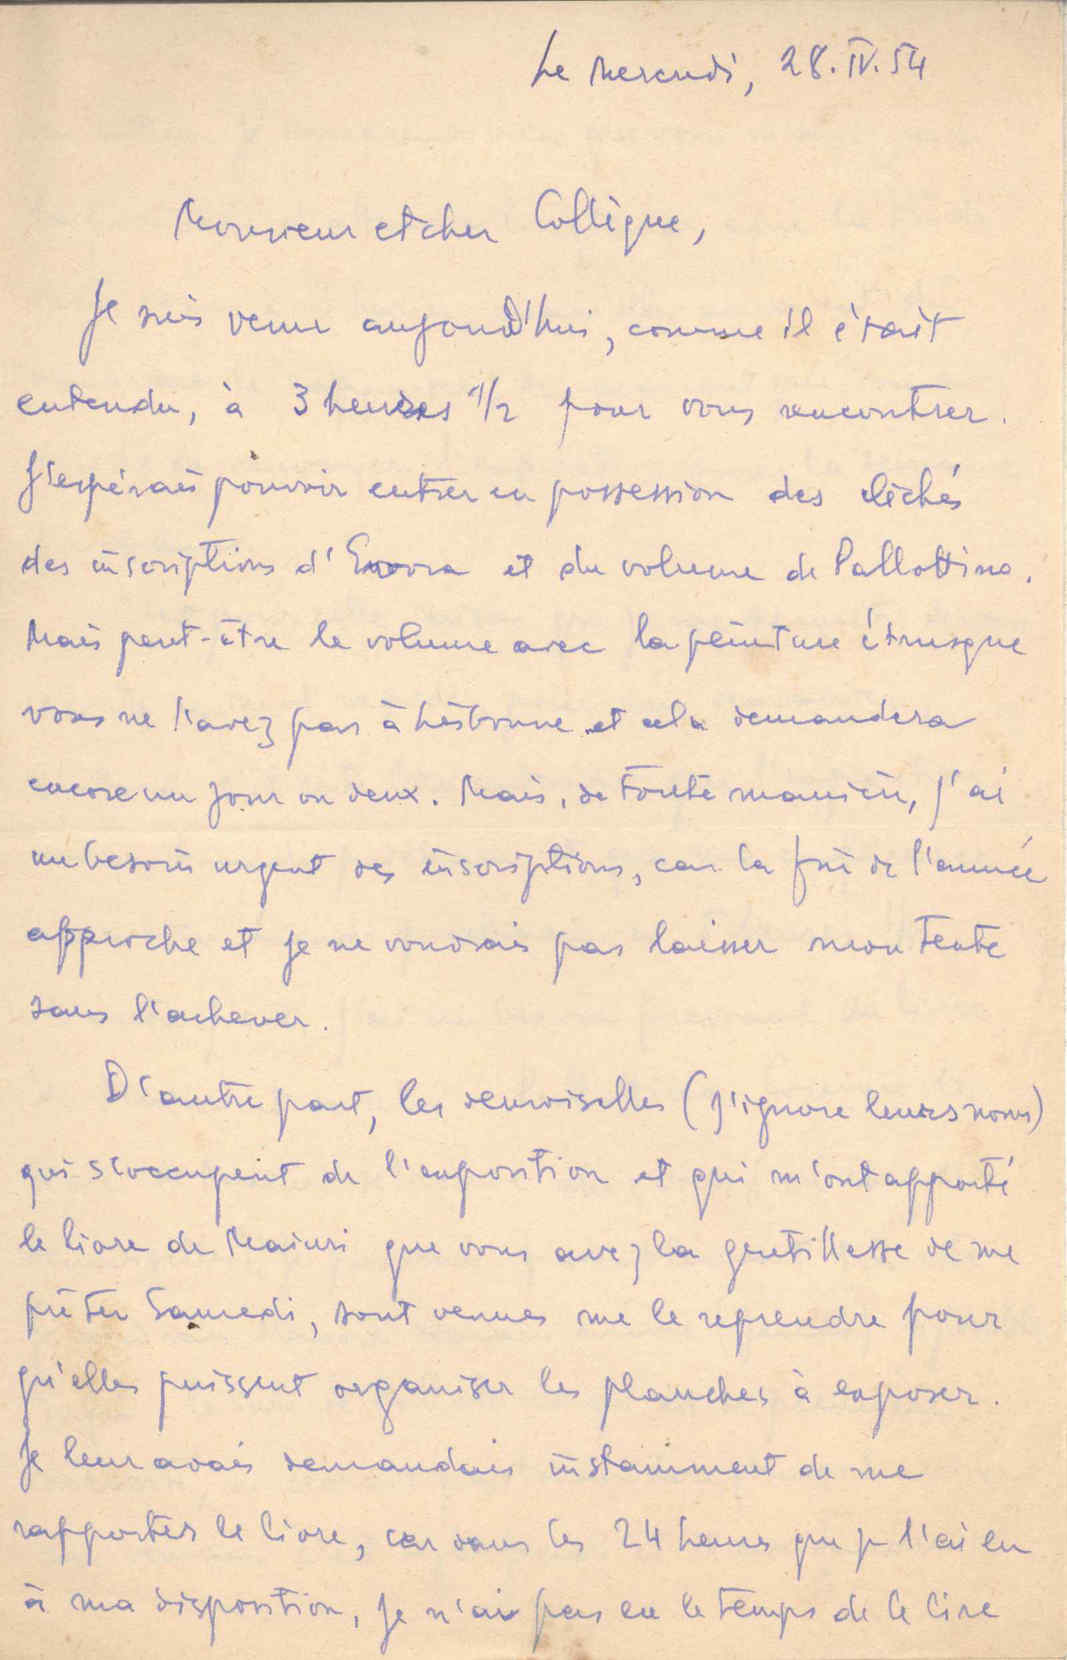 Le Mercredi, 28. IV. 54
Monsieur et cher Collègue,
Je suis venu aujourd'hui, comme il était
entendu, à 3 heures 1/2 pour vous rencontrer.
J'espérais pouvoir entrer en possession des clichés
des inscriptions d'Evora et du volume de Pallottino.
Mais peut-être le volume avec la peinture étrusque
vous ne l'avez pas à Lisbonne et cela demandera
encore un jour ou deux. Mais, de toute manière, j'ai
un besoin urgent des inscriptions, car la fin de l'année
approche et je ne voudrais pas laisser mon texte
sans l'achever.
D'autre part, les demoiselles (j'ignore leurs noms)
qui s'occupent de l'exposition et qui m'ont apporté
le livre de Maiuri que vous avez la gentillesse de me
prêter Samedi, sont venues me le reprendre pour
qu'elles puissent organiser les planches à exposer.
Je leur avais demandais instamment de me
rapporter le livre, car dans les 24 heures que je l'ai eu
à ma disposition, je n'ai pas eu le temps de le lire